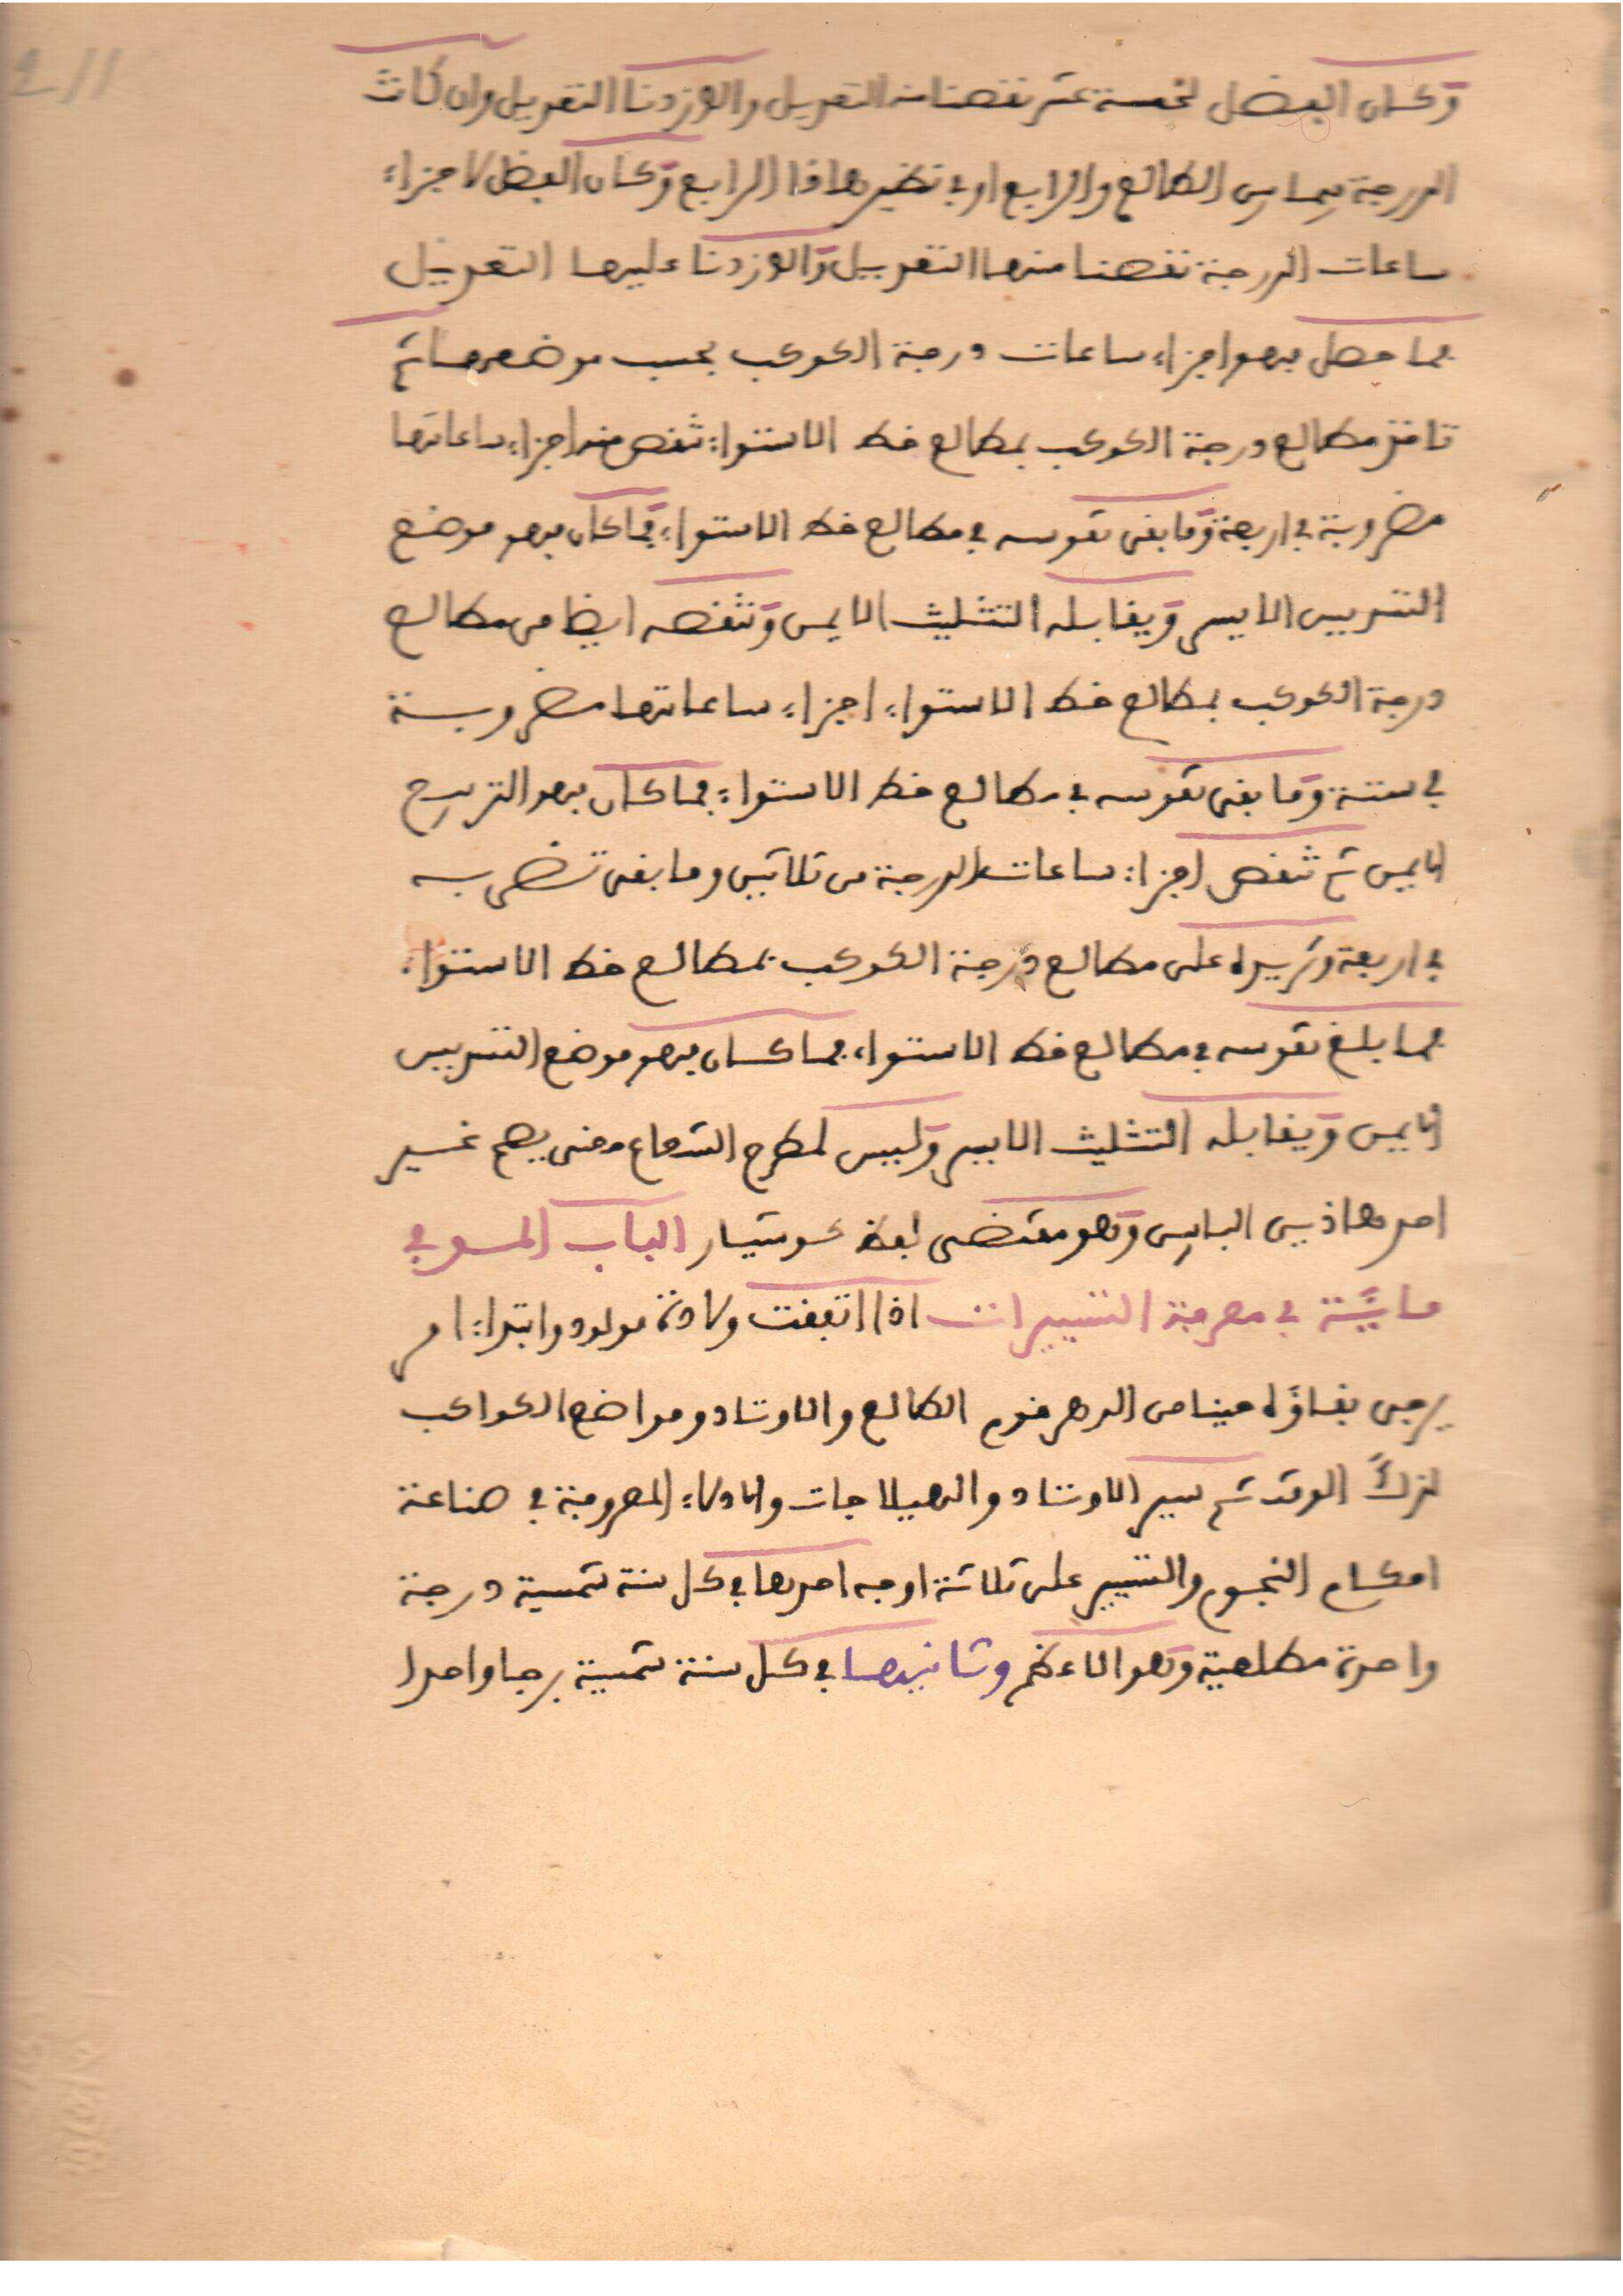 211
وكان الفضل لخمسة عشر نقصنا منه التعديل والا زدنا التعديل وان كانت
الدرجة فيما بين الطالع والرابع او في نظير هاذا الرابع وكان الفضل لاجزاء
ساعات الدرجة نقصنا منها التعديل والا زدنا عليها التعديل
فما حصل فهو اجزاء ساعات درجة الكوكب بحسب موضعها ثم
تاخذ مطالع درجة الكوكب بمطالع خط الاستواء تنقص منه اجزاء ساعاتها
مضروبة في اربعة وما بقى تقوسه في مطالع خط الاستواء فما كان فهو موضع
التسديس الايسر ويقابله التثليث الايمن وتنقصه ايضا من مطالع
درجة الكوكب بمطالع خط الاستواء اجزاء ساعاتها مضروبة
في ستة وما بقى تقوسه في مطالع خط الاستواء فما كان فهو التربيع
الايمن ثم تنقص اجزاء ساعات الدرجة من ثلاثين وما بقى تضربه
في اربعة وتزيده على مطالع درجة الكوكب بمطالع خط الاستواء
فما بلغ تقوسه في مطالع خط الاستواء فما كان فهو موضع التسديس
الايمن ويقابله التثليث الايسر وليس لمطرح الشعاع معنى يصح غير
احد هاذين البابين وهو مقتضى لفظ كوشيار الباب الموفي
مايية في معرفة التسييرات اذا اتفقت ولادة مولود وابتداء امر
يرجى بقاؤه حينا من الدهر فقوم الطالع والاوتاد ومواضع الكواكب
لذلك الوقت ثم سير الاوتاد والهيلاجات والادلاء المعروفة في صناعة
احكام النجوم والتسيير على ثلاثة اوجه احدها في كل سنة شمسية درجة
واحدة مطلعية وهو الاعظم وثانيها في كل سنة شمسية برجا واحدا